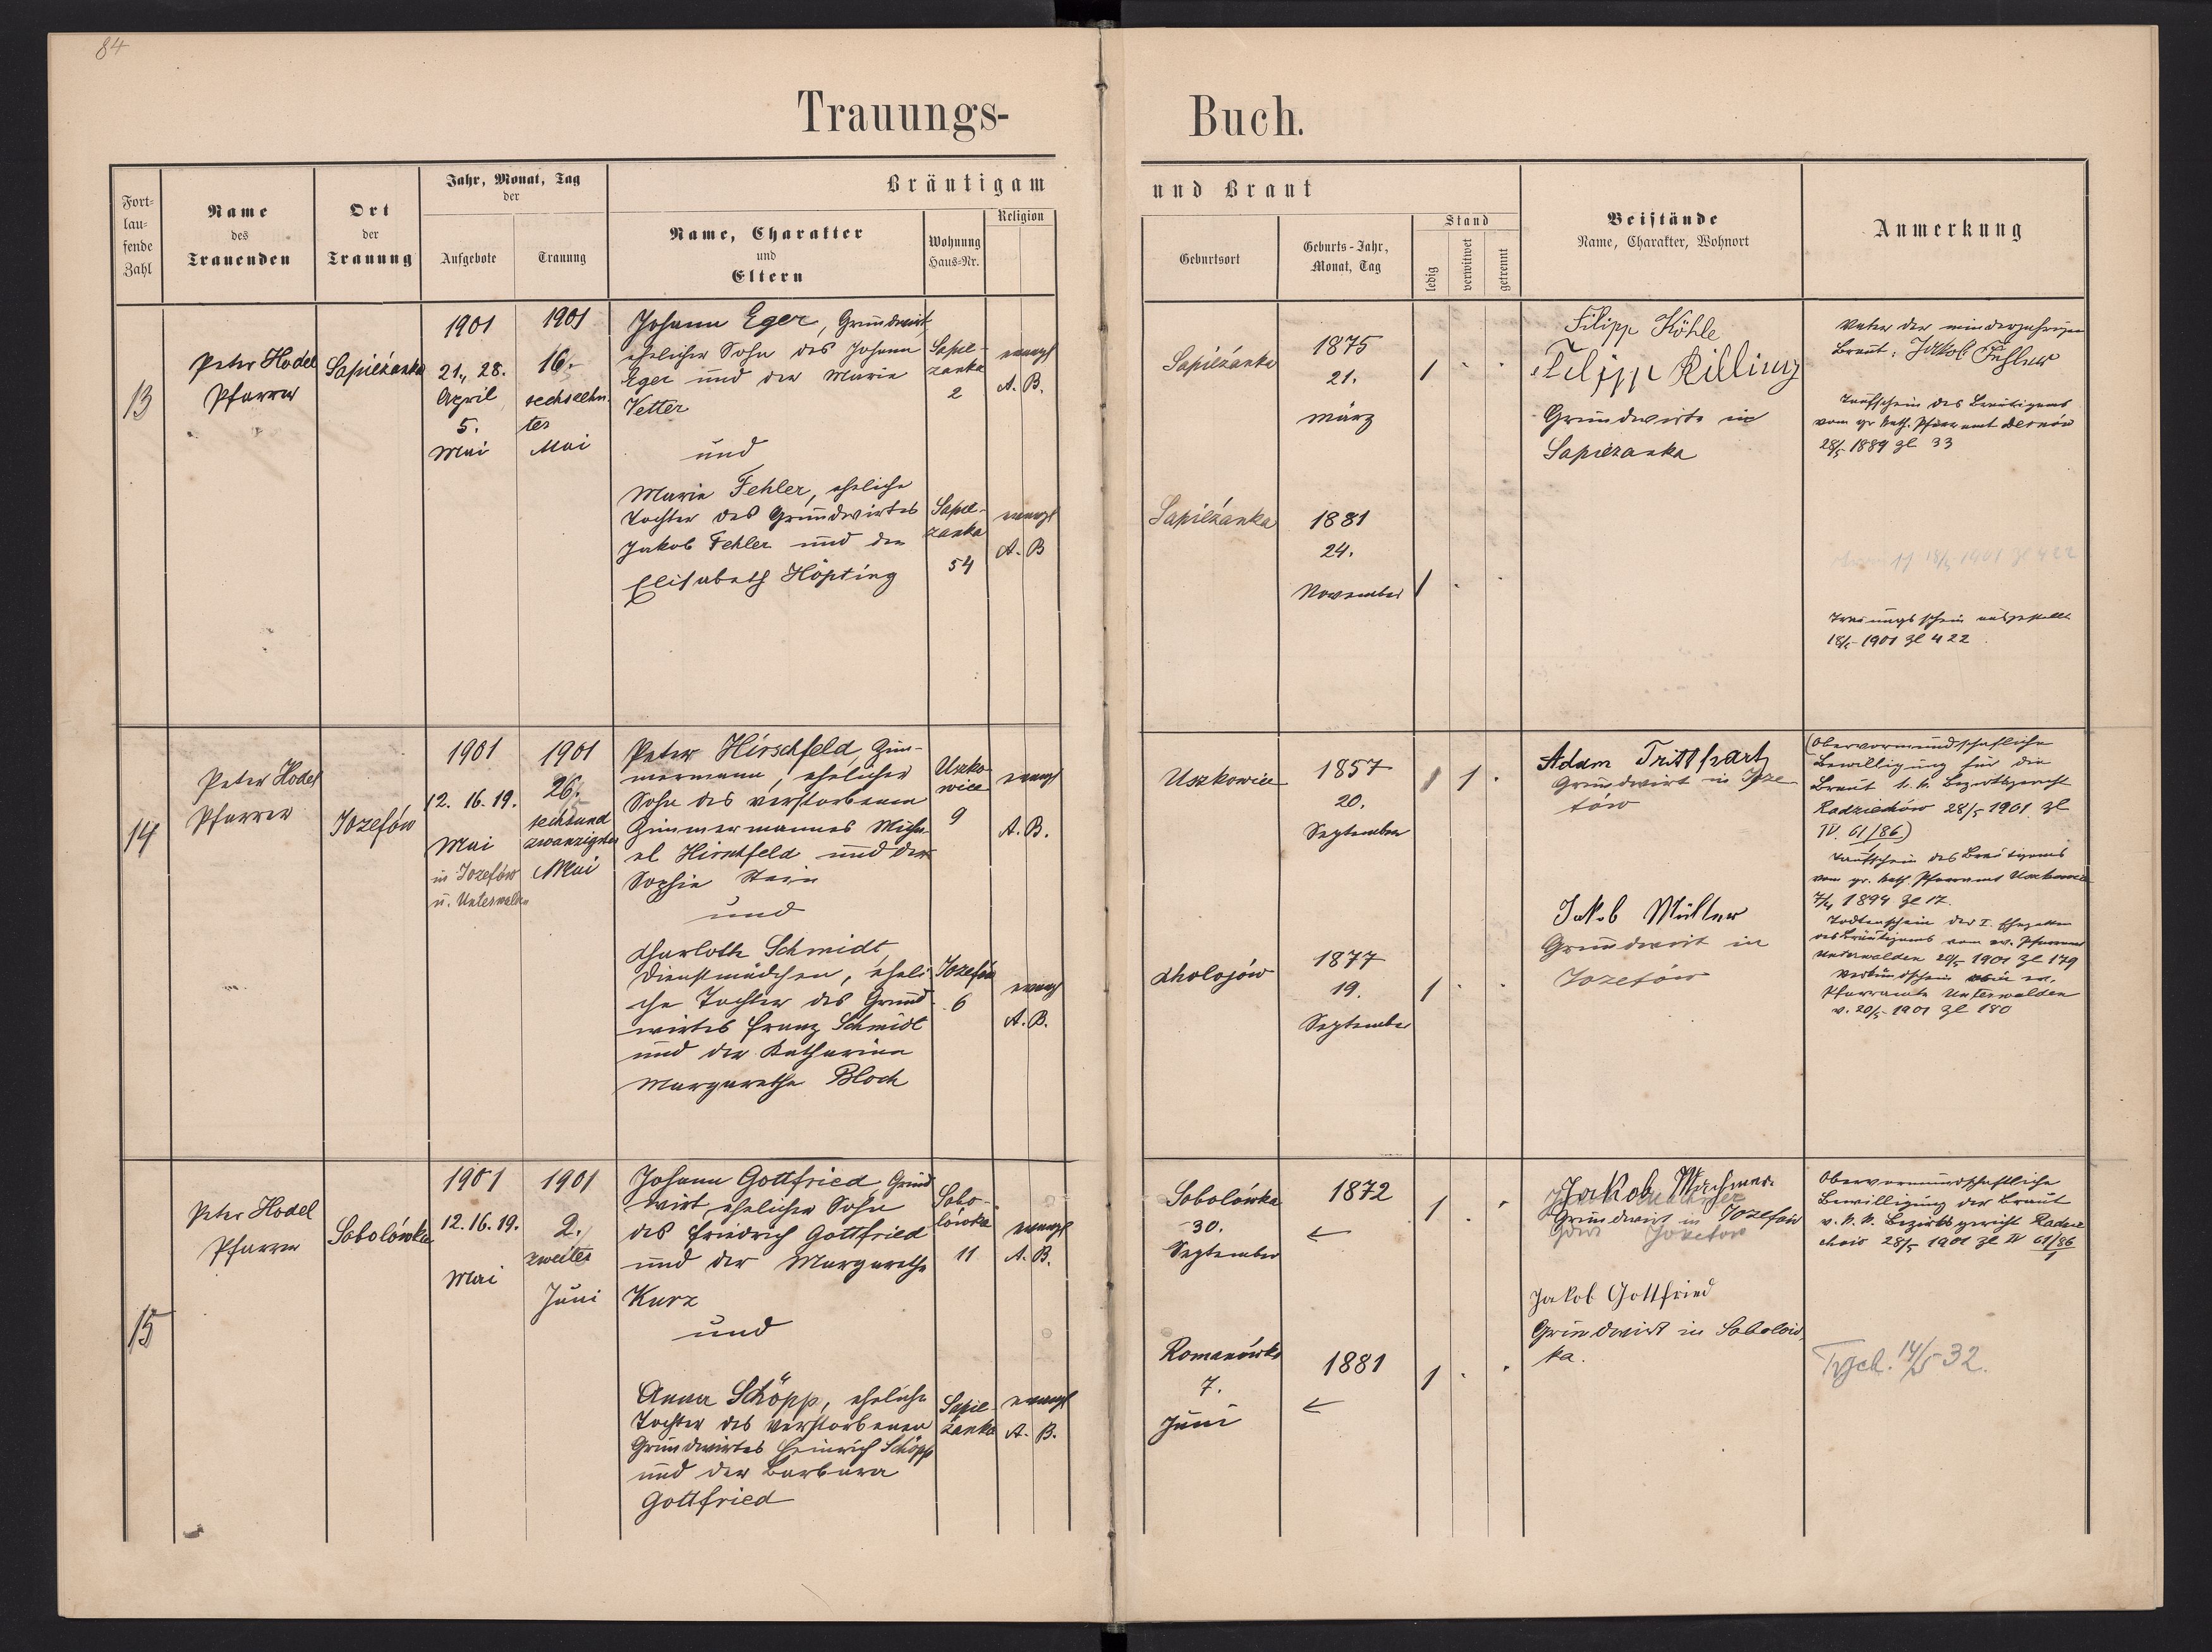 84
Trauungs-
Buch.
Fort-
lau-
fende
Zahl
Name
des
Trauenden
Ort
der
Trauung
Jahr, Monat, Tag
der
Aufgebote
Trauung
Bräutigam
Name, Charakter
und
Eltern
Wohnung
Haus-Nr.
Religion
und Braut
Geburtsort
Geburts-Jahr,
Monat, Tag
Stand
ledig
verwitwet
getrennt
Beistände
Name, Charakter, Wohnort
Anmerkung
13
Peter Hodel
Pfarrer
Sapieżanka
1901
21., 28.
April
5.
Mai
1901
16.
sechzehn-
tes
Mai
Johann Eger, Grundwirt
ehelicher Sohn des Johann
Eger und der Marie
Vetter
und
Marie Fehler, eheliche
Tochter des Grundwirtes
Jakob Fehler und der
Elisabeth Höpting
Sapie-
zanka
2
evangl
A. B.
Sapie-
zanka
54
evangl
A. B
Sapieżanka
1875
21.
März
1
Sapieżanka
1881
24.
November
1
Filipp Köhle
Filipp Rilling
Grundwirte in
Sapieżanka
Vater der minderjährigen
Braut: Jakob Fehler
Taufschein des Bräutigams
vom gr. kath. Pfarramt Dernów
28/5 1889 Zl 33
18/5 1901 Zl 422
Trauungsschein ausgestellt
18/5 1901 Zl 422
14
Peter Hodel
Pfarrer
Jozefów
1901
12. 16. 19.
Mai
in Jozefów
u. Unterwalden
1901
26.
sechsund
zwanzigstes
Mai
Peter Hirschfeld, Zim-
mermann, ehelicher
Sohn des verstorbenen
Zimmermannes Micha-
el Hirschfeld und der
Sophie Stein
und
Charlotte Schmidt,
Dienstmädchen, eheli-
che Tochter des Grund-
wirtes Franz Schmidt
und der Katharina
Margarethe Bloch
Uszko-
wice
9
evangl
A. B.
Jozefów
6
evang
A. B.
Uszkowice
1857
20.
September
1 1
Cholojów
1877
19.
September
1
Adam Tritthart
Grundwirt in Joze-
fów
Jakob Müller
Grundwirt in
Jozefów
(Obervormundschaftliche
Bewilligung für die
Braut k. k. Bezirksgericht
Radziechów 28/5 1901 Zl
IV. 61/86)
1
Taufschein des Bräutigams
vom gr. kath. Pfarramt Uszkowice
7/4 1894 Zl 17.
Todtenschein der I. Ehegattin
des Bräutigams vom ev. Pfarramt
Unterwalden 20/5 1901 Zl 179
Verkündschein vom ev.
Pfarramte Unterwalden
v. 20/5 1901 Zl 180
15
Peter Hodel
Pfarrer
Sobolówka
1901
12. 16. 19.
Mai
1901
2.
zweites
Juni
Johann Gottfried, Grund-
wirt, ehelicher Sohn
des Friedrich Gottfried
und der Margarethe
Kurz
und
Anna Schöpp, eheliche
Tochter des verstorbenen
Grundwirtes Heinrich Schöpp
und der Barbara
Gottfried
Sobo-
lówka
11
evangl
A. B.
Sapie-
żanka
evangl
A. B.
Sobolówka
30.
September
1872
←
1
Romanówka
7.
Juni
1881
←
1
Jakob
Grundwirt in Jozefów
Jakob Gottfried
Grundwirt in Sobolow-
ka.
Obervormundschaftliche
Bewilligung der Braut
v. k. k. Bezirksgericht Radzie-
chow 28/5 1901 Zl IV 61/86
1
14/5 32.